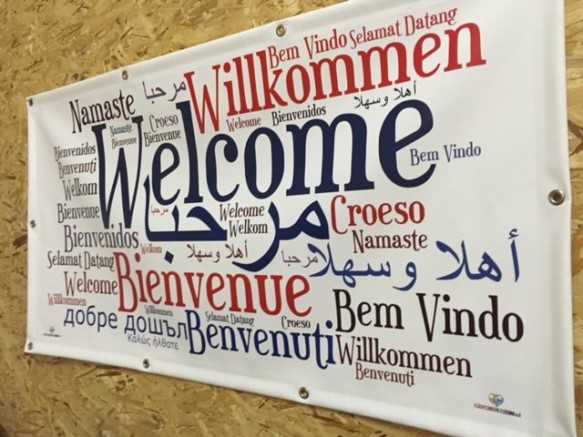 Bem Vindo Selamat Datang
Willkommen
مرحبا
Namaste
أهلا وسهلا
Namaste Croeso Welcome Bienvenidos
Welcome
Bienvenidos Bienvenue Bienvenue
Benvenuti
Welkom
Bem Vindo
مرحبا
Bienvenue
مرحبا Welcome Croeso
Bienvenidos Welkom Namaste
Welkom أهلا وسهلا مرحبا أهلا وسهلا
Selamat Datang
Bienvenue
Welcome
Bem Vindo
Willkommen
Willkommen Selamat Datang Croeso
добре дошъл
Benvenuti
Willkommen
Καλώς ήλθατε
Benvenuti